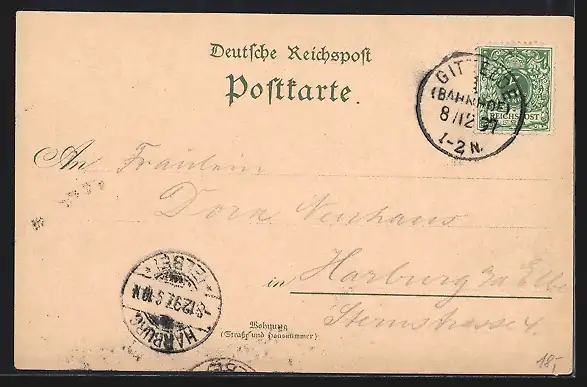 Deutsche Reichspost
Postkarte.
GITTELDE
(BAHNHOF)
8/12 97
1-2 N.
REICHSPOST
An Fräulein
Dora Neuhaus
in Harburg a/Elbe
Sternstrasse 4.
HARBURG
(ELBE)
8.12.97.9-10N
Wohnung
(Straße und Hausnummer)
18,-